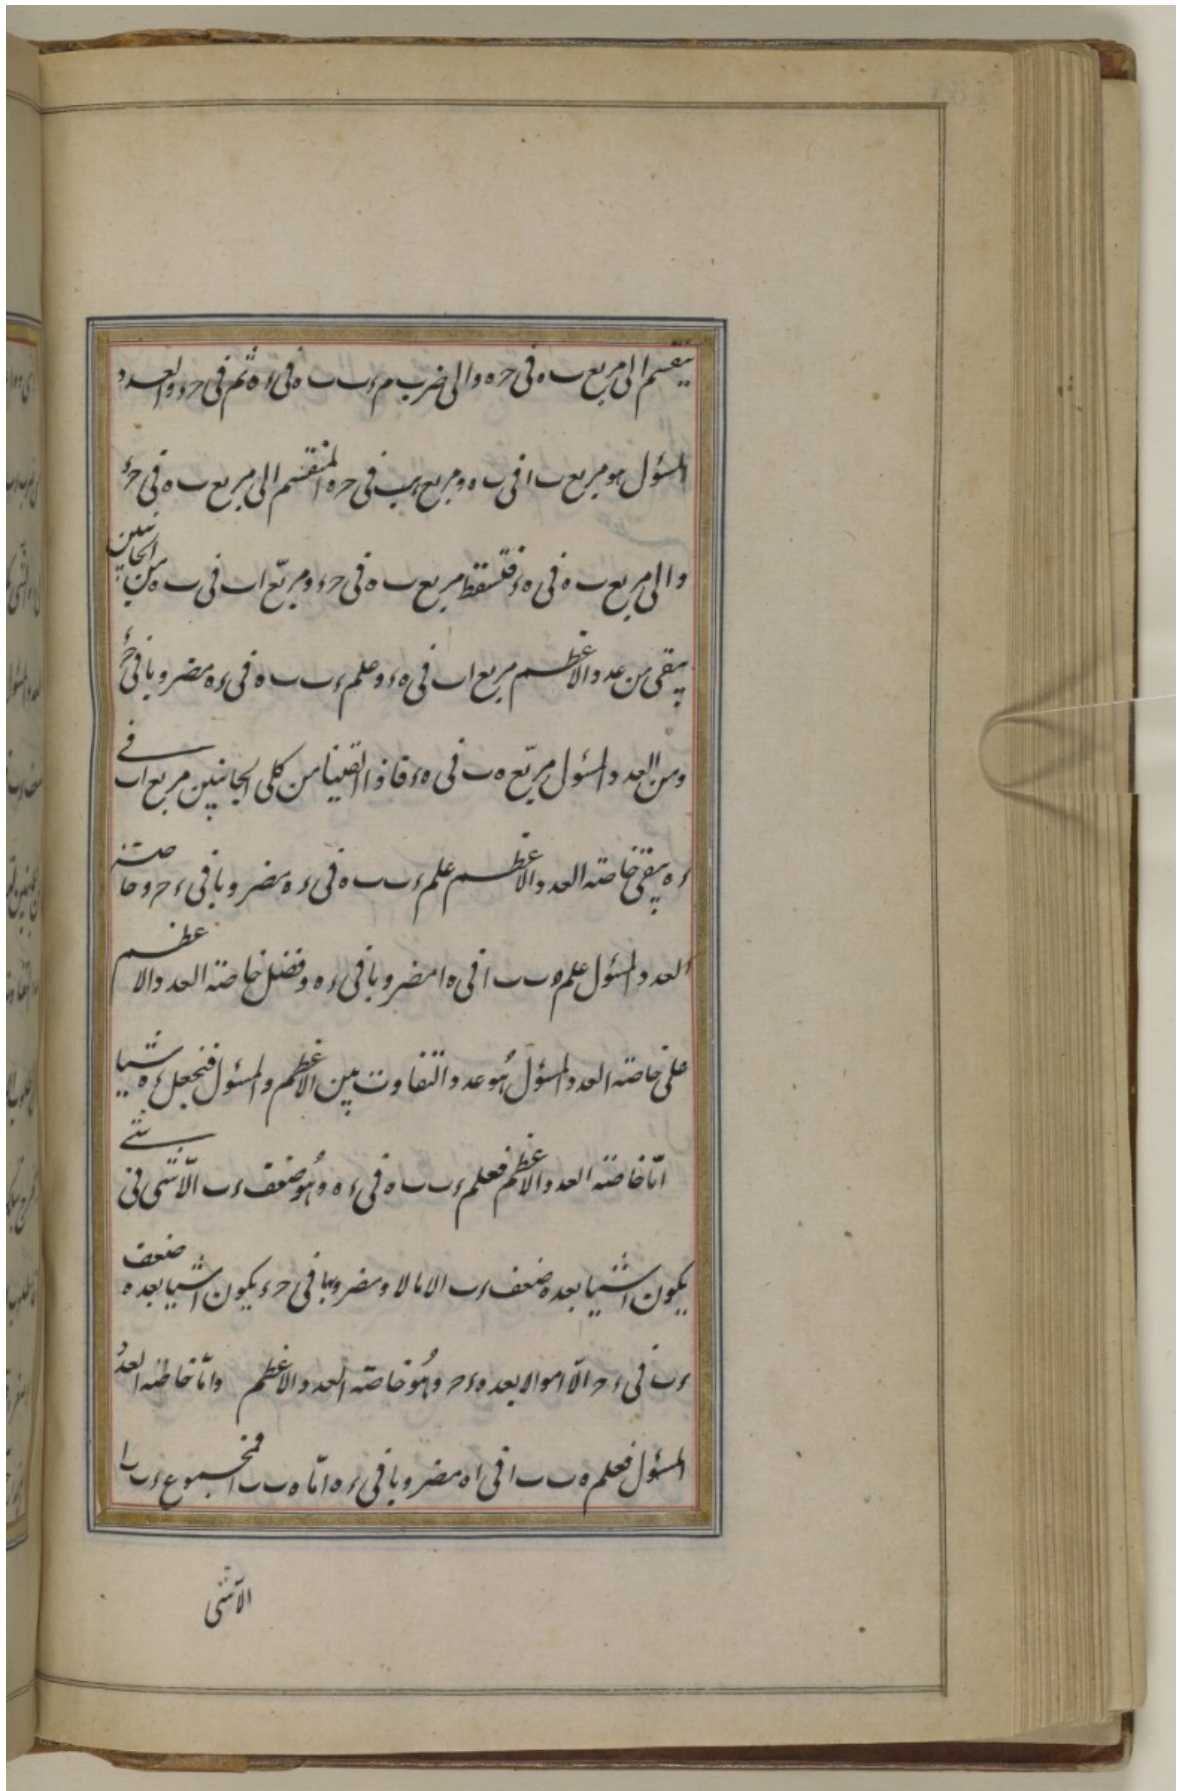 ينقسم الى مربع ب ه فى حه والى ضرب م ء ب ب ه فى ء ه ثم فى حء والعدد
المسؤل هو مربع ب ا فى ب ه ومربع فى حه المنقسم الى مربع ب ه فى حء
والى مربع ب ه فى ه ء فتسقط مربع ب ه فى حء ومربع اب فى ب ه من الجانبين
يبقى من عدد الاعظم مربع اب فى ه ء وعلم ء ب ب ه فى ء ه مضروبا فى حء
ومن العدد المسؤل مربع ه ب فى ه ء فاذا القينا من كلى الجانبين مربع اب فى
ء ه يبقى خاصته العدد الاعظم علم ء ب ب ه فى ء ه مضروبا فى ء ح وخاصته
العدد المسؤل علم ه ب ب ا فى ه ا مضروبا فى ء ه وفضل خاصته العدد الاعظم
على خاصته العدد المسؤل هو عدد التفاوت بين الاعظم والمسؤل فنجعل ء ه شيا
امّا خاصته العدد الاعظم فعلم ء ب ب ه فى ء ه وهو ضعف ء ب الّا شى فى شى
يكون اشيا بعده ضعف ء ب الا مالا ومضروبها فى حء يكون اشيا بعده ضعف
ء ب فى ء ح الّا اموالا بعده ء ح وهو خاصته العدد الاعظم وامّا خاصته العدد
المسؤل فعلم ه ب ب ا فى ا ه مضروبا فى ء ه امّا ه ب ب ا فمجموع ء ب ب ا
الّا شى